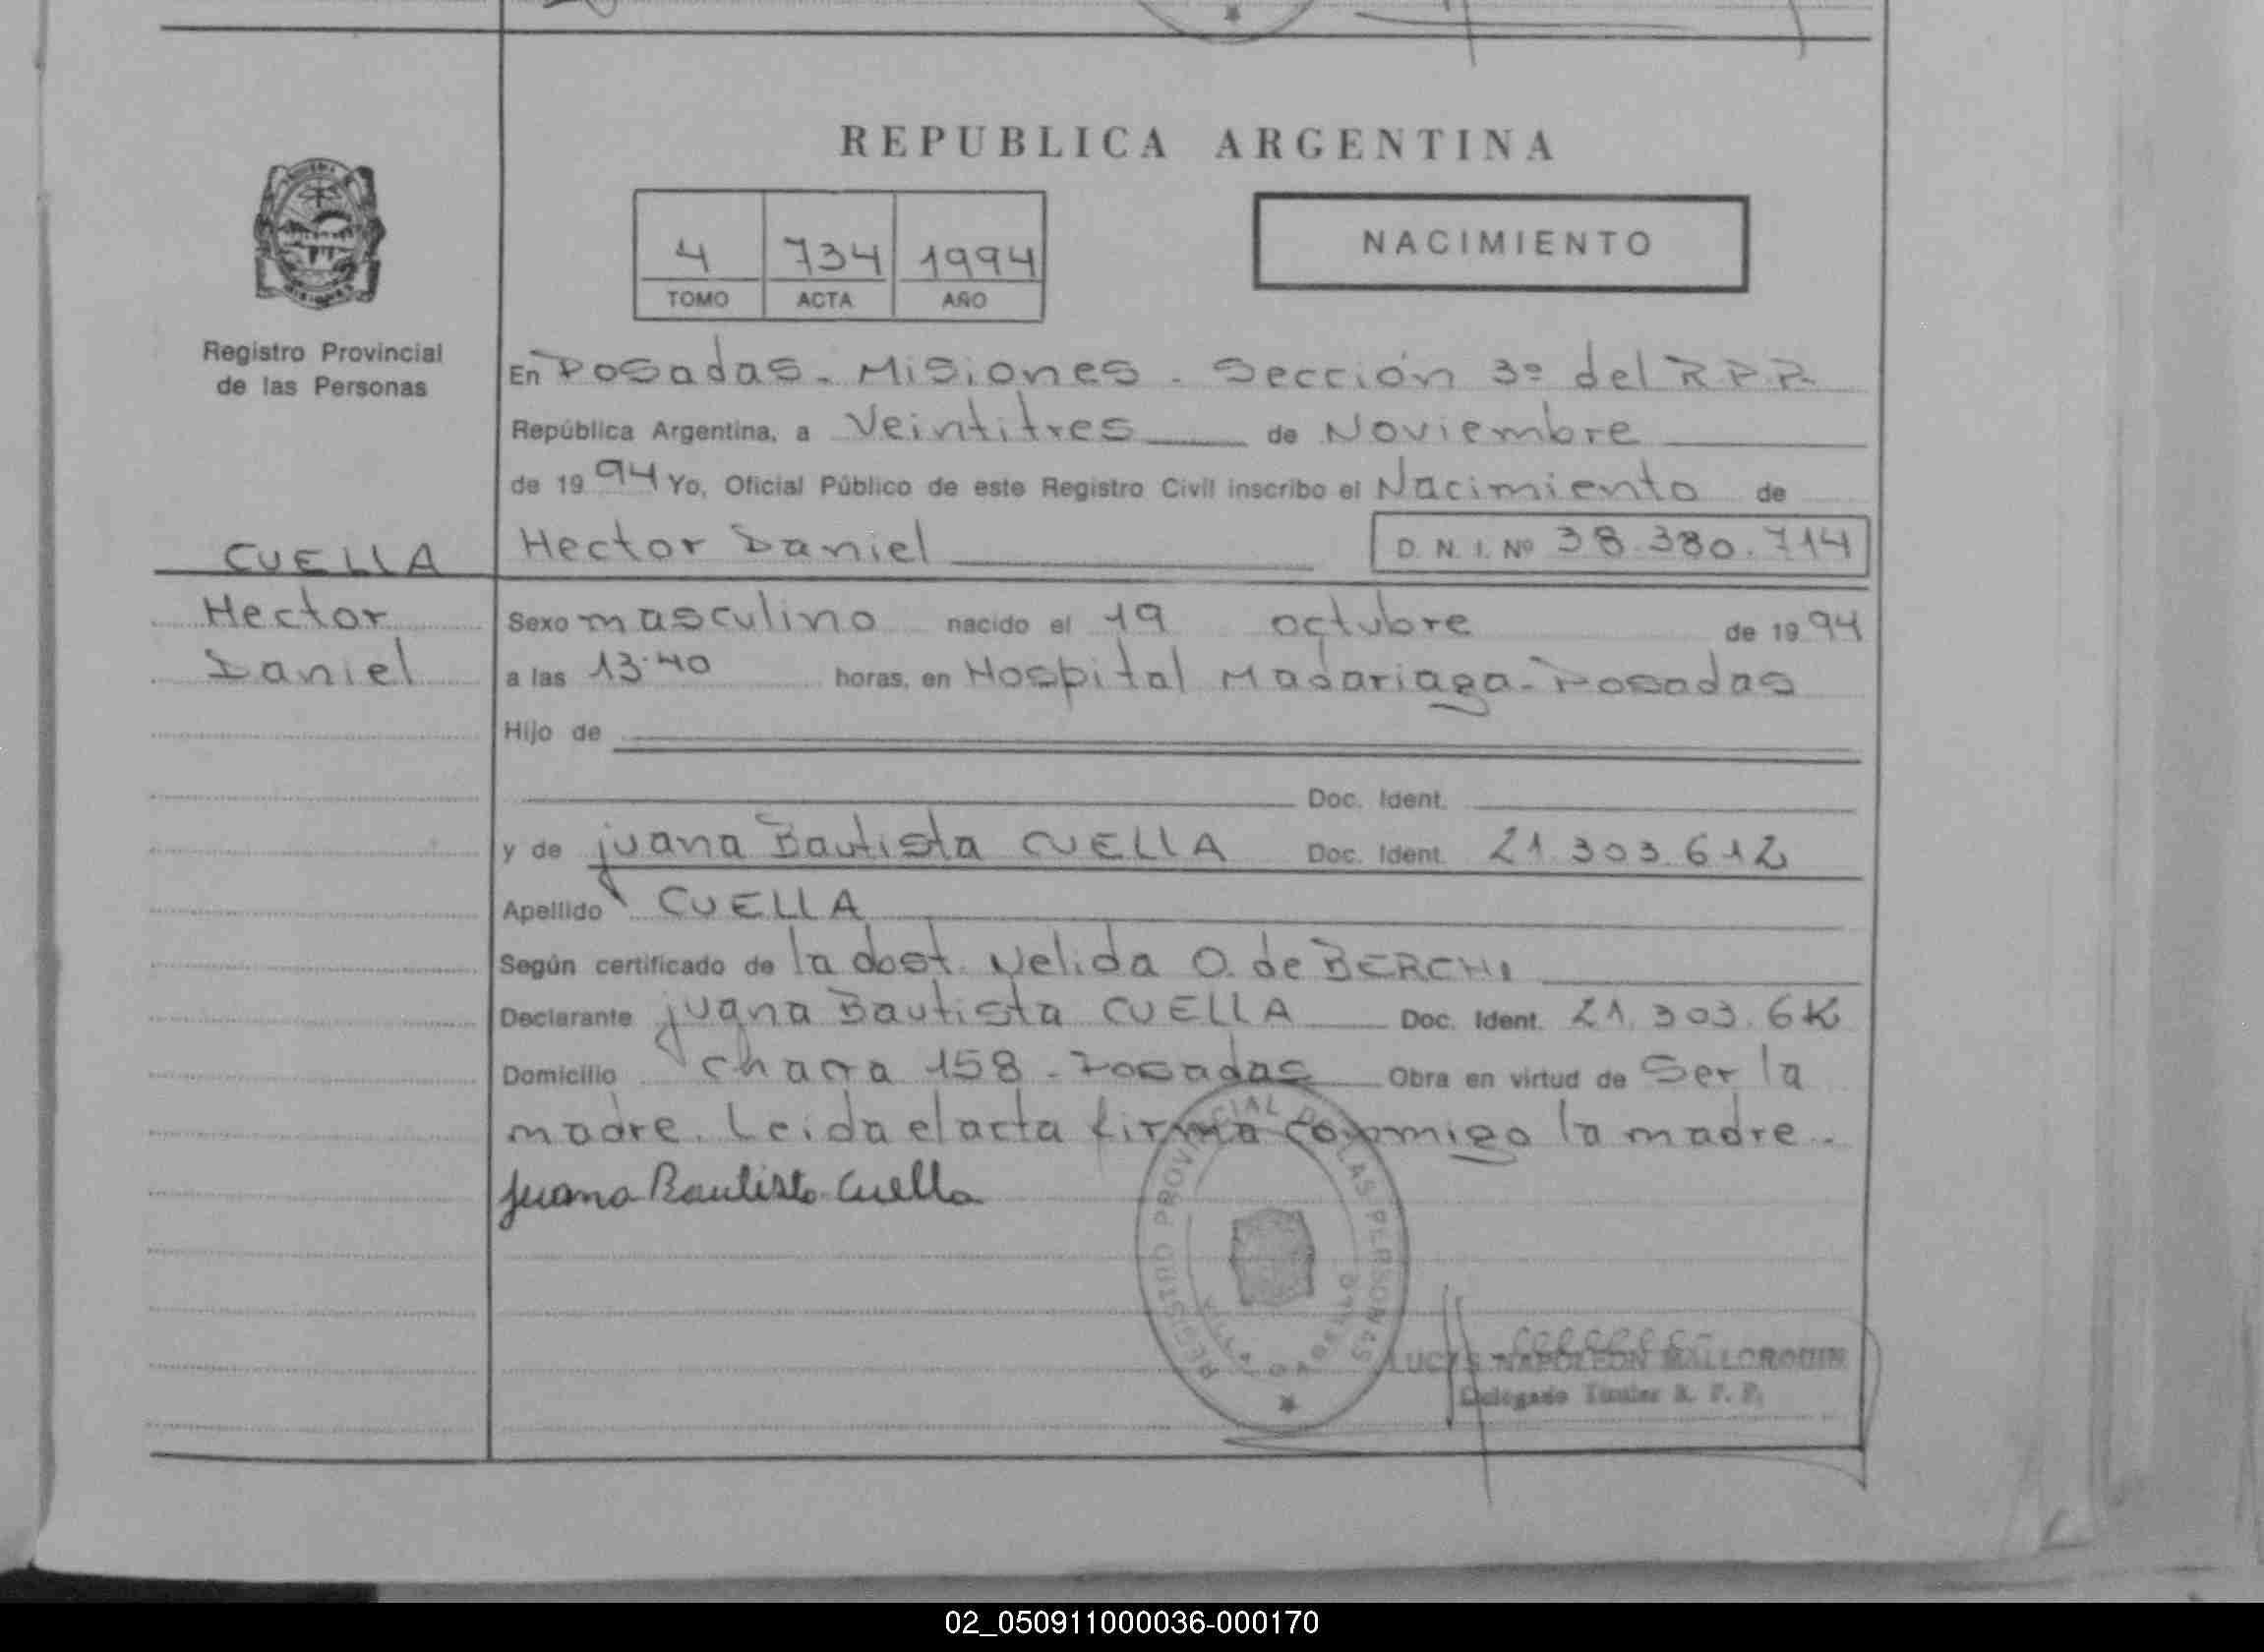 REPUBLICA ARGENTINA
4 734 1994
TOMO ACTA AÑO
NACIMIENTO
Registro Provincial
de las Personas
En Posadas - Misiones - Sección 3ª del R.P.P.
República Argentina, a Veintitres de Noviembre
de 19 94 Yo, Oficial Público de este Registro Civil inscribo el Nacimiento de
Hector Daniel D. N. I. Nº 38.380.714
CUELLA
Hector
Daniel
Sexo masculino nacido el 19 octubre de 19 94
a las 13:40 horas, en Hospital Madariaga - Posadas
Hijo de
Doc. Ident.
y de Juana Bautista CUELLA Doc. Ident. 21.303.612
Apellido CUELLA
Según certificado de la obst. Nelida O. de BERCHI
Declarante Juana Bautista CUELLA Doc. Ident. 21.303.612
Domicilio chacra 158 - Posadas Obra en virtud de Ser la
madre. Leida el acta firma conmigo la madre.
Juana Bautista Cuella
REGISTRO PROVINCIAL DE LAS PERSONAS
LUCAS NAPOLEON MALLORQUIN
Delegado Titular R. P. P.
02_050911000036-000170